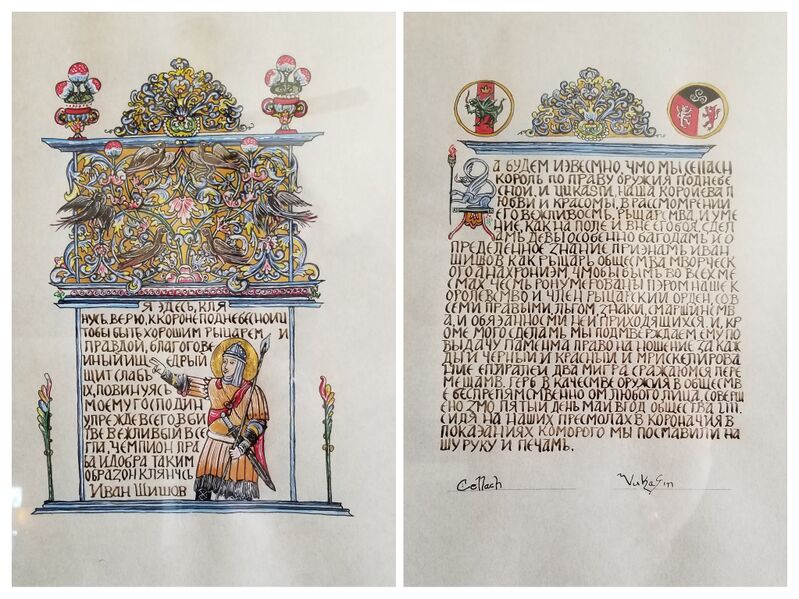 Я ЗДЕСЬ, КЛЯ
НУСЬ. ВЕРЮ, К КОРОНЕ ПОДНЕБЕСНОИ Ш
ТОБЫ БЫТЬ ХОРОШИМ РЫЦАРЕМ И
ПРАВДОЙ, БЛАГОГОВЕ
ИНЫЙ И Щ ЕДРЫЙ
ЩИТ СЛАБЬ
ІХ, ПОВИНУЯСЬ
МОЕМУ ГОСПОДИН
УПРЕЖДЕ ВСЕГО. В БИ
ТВЕ ВЕЖЛИВЫЙ В СЕ
ГДА, ЧЕМПИОН ПРА
ВА И ДОБРА ТАКИМ
ОБРАЗОН КЛЯНУСЬ
ИВАН ШИШОВ
А БУДЕМ ИЗВЕСМНО ЧМО МЫ СЕЛАСН
КОРОЛЬ ПО ПРАВУ ОРУЖИЯ ПОДНЕБЕ
СНОЙ, И НАША КОРОЛЕВА Л
ЮБВИ И КРАСОМЫ, В РАССМОМРЕНИИ
ЕГО ВЕЖЛИВОСМЬ, РЫЦАРСМВА, И УМЕ
НИЕ, КАК НА ПОЛЕ И ВНЕ ЕГО БОЯ, СДЕЛ
АМЬ, ДЕВЫ ОСОБЕННО БАГОДАМЬ И О
ПРЕДЕЛЕННОЕ ZНАНИЕ ПРИZНАМЬ ИВАН
ШИШОВ КАК РЫЦАРЬ ОБЩЕСМВА МВОРЧЕСК
ОГО АНАХРОНИZМ ЧМОБЫ БЫМЬ ВО ВСЕХ МЕ
СМАХ ЧЕСМЬ РОНУМЕРОМАНЫ ПЭРОМ НАШЕ К
ОРОЛЕВСМВО И ЧЛЕН РЫЦАРСКИЙ ОРДЕН, СО В
СЕМИ ПРАВЫМИ ЛЬГОМ, ZНАКИ, СМАРШИНСМ
ВА, И ОБЯZАННОСМИ НЕЙ ПРИХОДЯЩИХСЯ. И, КР
ОМЕ МОГО СДЕЛАМЬ МЫ ПОДМВЕРЖДАЕМ ЕМУ ПО
ВЫДАЧУ ПАМЕНМА ПРАВО НА НОШЕНИЕ ZА КАЖ
ДЫГИ ЧЕРНЫМ И КРАСНЫМ И МРИСКЕЛИРОВА
НИЕ СПИРАЛЕЙ ДВА МИГРА СРАЖАЮМСЯ ПЕРЕ
МЕШАМЬ. ГЕРБ В КАЧЕСМВЕ ОРУЖИЯ В ОБЩЕСМВ
Е БЕСПРЕПЯМСМВЕННО ОМ ЛЮБОГО ЛИЦА. СОВЕРШ
ЕНО ZМО ПЯМЫЙ ДЕНЬ МАЙ В ГОД ОБЩЕСМВА
СИДЯ НА НАШИХ ПРЕСМОЛАХ В КОРОНАЧИЯ В
ПОКАZАНИЯХ КОМОРОГО МЫ ПОСМАВИЛИ НА
ШУ РУКУ И ПЕЧАМЬ.
Cellach Vukasin